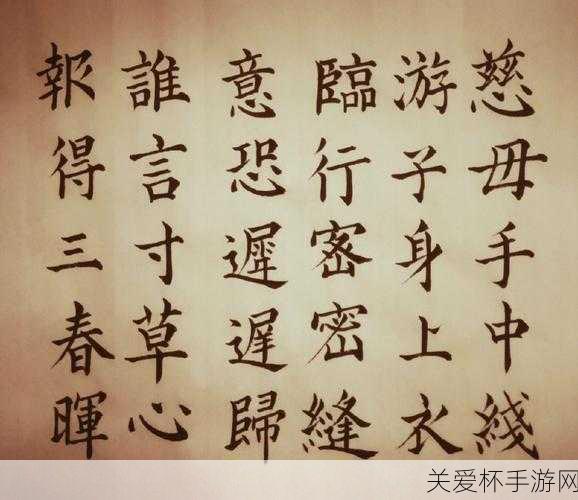 慈母手中綫
游子身上衣
臨行密密縫
意恐遲遲歸
誰言寸草心
報得三春暉
关爱杯手游网